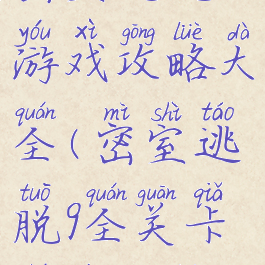 yóu xì gōng lüè dà
游戏攻略大
quán mì shì táo
全(密室逃
tuō quán guān qiǎ
脱9全关卡